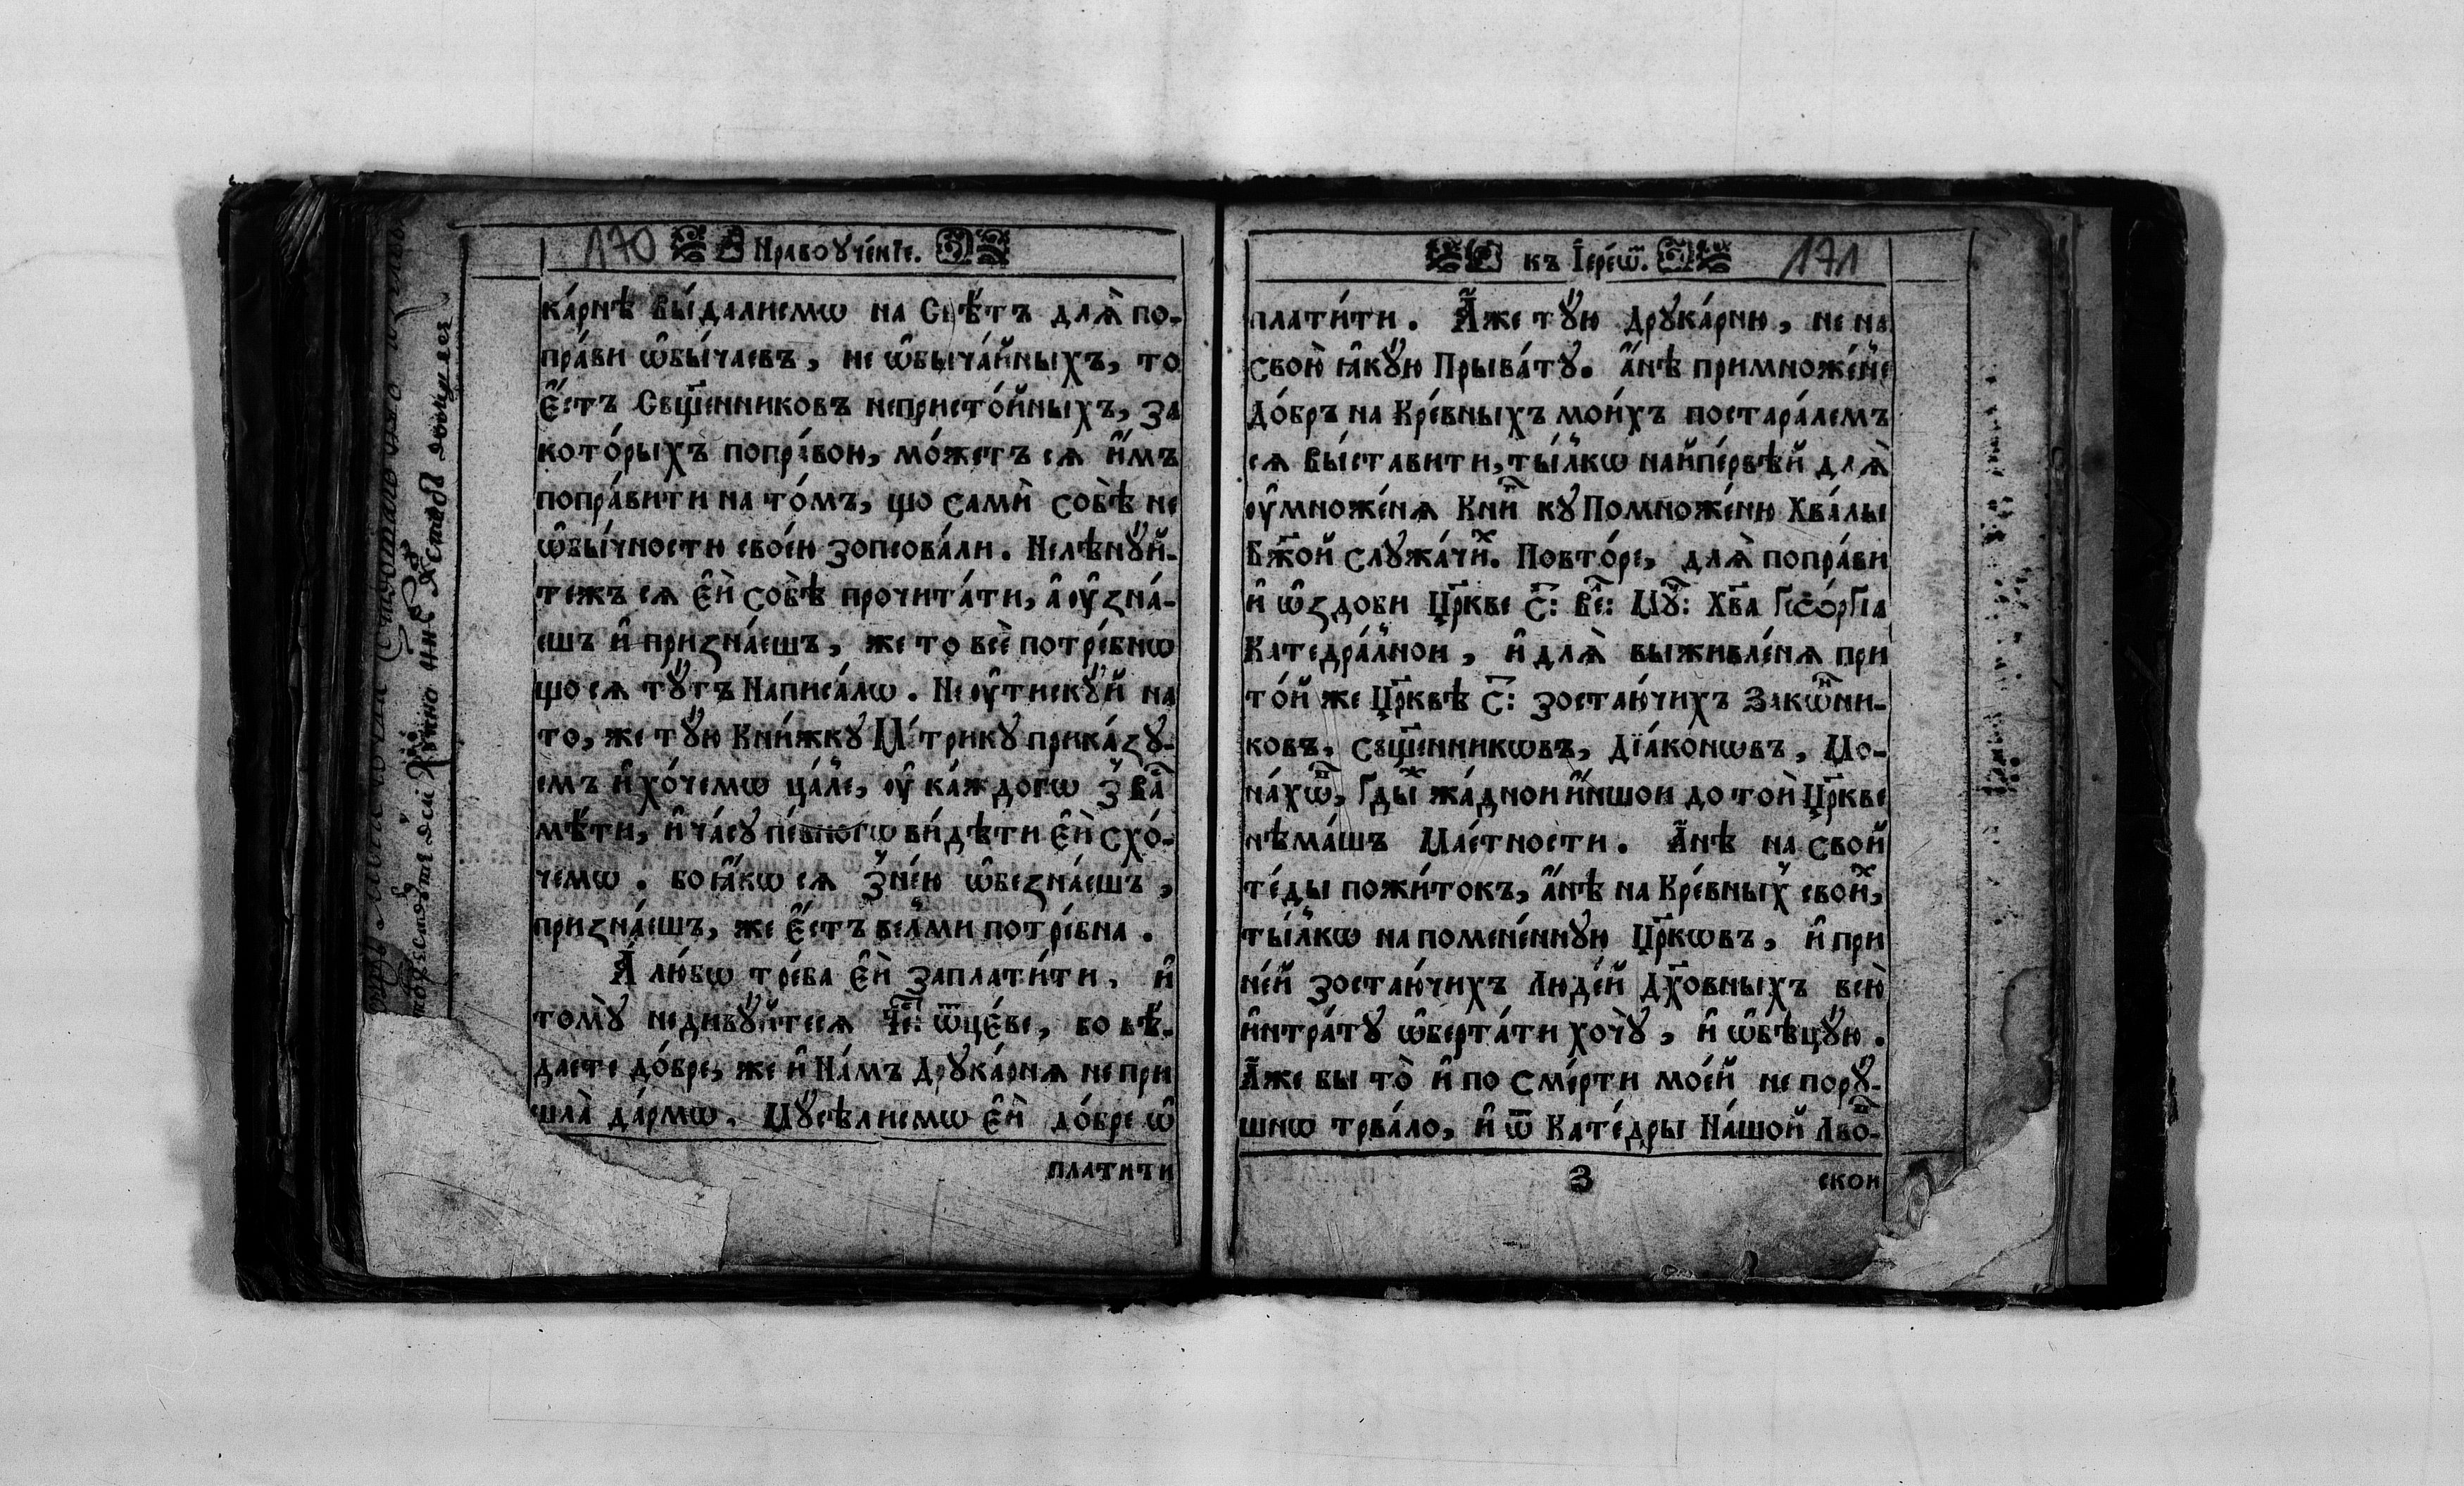 170 Нравоꙋче́нїе.
ка́рнѣ вы́далисмѡ на Свѣ́тъ длѧ̀ по-
пра́ви ѡ҆бы́чаєвъ, не ѡ҆быча́йныхъ, то
є҆́стъ Сщ҃е́нниковъ непристо́йныхъ, за
кото́рыхъ попра́вои, мо́жетъ сѧ и҆́мъ
попра́вити на то́мъ, що самѝ собѣ̀ не
ѡ҆бы́чности своє́ю зопсова́ли. Нелѣнꙋ́й-
тежъ сѧ є҆ѝ собѣ̀ прочита́ти, а҆ ᲂу҆зна́-
єшъ и҆ призна́єшъ, же то всѐ потре́бнѡ
що сѧ тꙋ́тъ Написа́лѡ. Не ᲂу҆тискꙋ́й на
то, же тꙋ́ю Кни́жкꙋ М́трикꙋ прика́зꙋ-
ємъ и҆ хо́чемѡ ца́ле, ᲂу҆ ка́ждогѡ З̾ ва́с
мѣ́ти, и҆ ча́сꙋ пе́вногѡ ви́дѣти є҆ѝ схо́-
чемѡ. бо ꙗ҆́кѡ сѧ З̾не́ю ѡ҆безна́єшъ,
призна́єшъ, же є҆́стъ ве́лми потре́бна.
А҆́ лю́бѡ тре́ба є҆ѝ заплати́ти, и҆
томꙋ̀ недивꙋ́йтесѧ Че҇: ѿце́ве, бо вѣ́-
даєте до́бре, же и҆ На́мъ Дрꙋка́рнѧ не при
шла̀ да́рмѡ. Мꙋсѣ́лисмѡ є҆ѝ до́бре ѡ҆
платити
къ І҆ере́ѡм. 171
плати́ти. А҆́же тꙋ́ю Дрꙋка́рню, не на
свою̀ ꙗ҆кꙋ́ю Прыва́тꙋ. а҆́нѣ примноже́нє
До́бръ на Кре́вныхъ мои́хъ постара́лемъ
сѧ вы́ставити, ты́лкѡ найпе́рвѣй длѧ̀
ᲂу҆множе́нѧ Кни́г кꙋ Помноже́ню Хва́лы
Бж҃ой слꙋжа́чих. Повто́ре, длѧ̀ попра́ви
и҆ ѡ҆здоби Цр҃кве С҃: Ве҇: Мꙋ҇: Хв҃а Геѡ́ргїа
Катедра́лнои, и҆ длѧ̀ выживле́нѧ при
то́й же Цр҃квѣ С҃: зостаю́чихъ Закѡ́нни-
ковъ, сщ҃е́нникѡвъ, Дїа́конѡвъ, Мо-
на́хѡв, Гды́ж жа́дной и҆́ншои до то́й Цр҃кве
нѣма́шъ Ма́єтности. А҆́нѣ на свой
те́ды пожи́токъ, а҆́нѣ на Кре́вных свои́х,
ты́лкѡ на помене́ннꙋю Цр҃ковъ, и҆ при
не́й зостаю́чихъ Люде́й Дх҃овныхъ всю̀
и҆нтра́тꙋ ѡ҆берта́ти хо́чꙋ, и҆ ѡ҆бѣцꙋ́ю.
А҆́же бы то̀ и҆ по Сме́рти моє́й не порꙋ́-
шнѡ трва́ло, и҆ ѿ Кате́дры На́шой Лво́в-
З скои